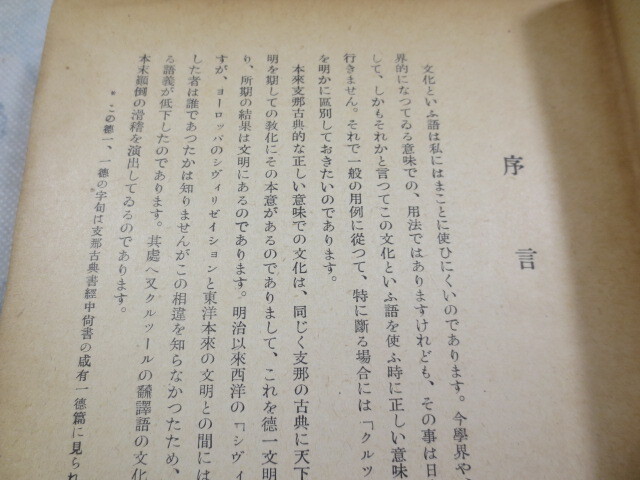 序言
文化といふ語は私にはまことに使ひにくいのであります。今學界や
界的になつてゐる意味での、用法ではありますけれども、その事は日
して、しかもそれかと言つてこの文化といふ語を使ふ時に正しい意味
行きません。それで一般の用例に從つて、特に斷る場合には「クルツ
を明かに區別しておきたいのであります。
本來支那古典的な正しい意味での文化は、同じく支那の古典に天下
明を期しての敎化にその本意があるのでありまして、これを德一文明
り、所期の結果は文明にあるのであります。明治以來西洋の「シヴィ
すが、ヨーロッパのシヴィリゼイションと東洋本來の文明との間には
した者は誰であつたかは知りませんがこの相違を知らなかつたため、
る語義が低下したのであります。其處へ又クルツールの飜譯語の文化
本末顚倒の滑稽を演出してゐるのであります。
* この德一、一德の字句は支那古典書經中尙書の咸有一德篇に見られ